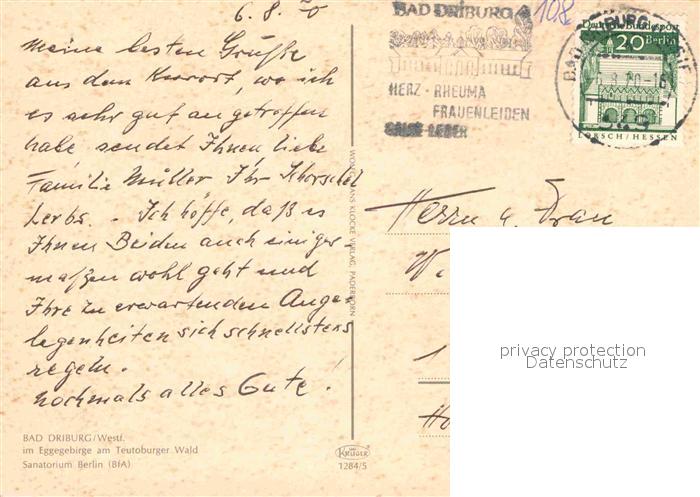 6. 8. 70
Meine besten Grüße
aus dem Kurort, wo ich
es sehr gut an getroffen
habe sendet Ihnen liebe
Familie Müller Ihr
Ich hoffe, daß es
Ihnen Beiden auch einiger-
maßen wohl geht und
Ihre zu erwartenden Ange-
legenheiten sich schnellstens
regeln.
nochmals alles Gute!
BAD DRIBURG/Westf.
im Eggegebirge am Teutoburger Wald
Sanatorium Berlin (BfA)
WOLFGANG HANS KLOCKE VERLAG, PADERBORN
KRÜGER
1284/5
BAD DRIBURG
HERZ · RHEUMA
FRAUENLEIDEN
GALLE LEBER
108
BAD DRIBURG
Deutsche Bundespost
20 Berlin
LORSCH/HESSEN
Herrn u. Frau
W.
1
privacy protection
Datenschutz